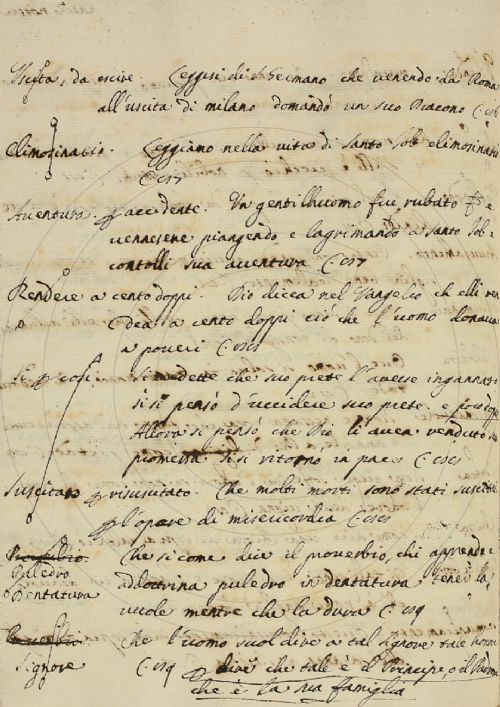 Uscita, da escire. Leggesi di S. Germano che venendo da Roma
all'uscita di milano domandò un suo Diacono C. 
Elimosinario. Leggiamo nella vita di santo elimosinario
C.
Aventura. p accidente. Un gentilhuomo fue rubato e
vennesene piangendo e lagrimando a santo
contolli sua aventura C.
Rendere a cento doppi. Dio dicea nel Vangelio ch elli ren
derà a cento doppi ciò che l'uomo donava
a poveri C.
Si p così. Si vedette che suo prete l'avesse ingannato
si si pensò d'uccidere suo prete. e
Allora si pensò che Dio li avea renduto
promessa si si ritornò in pace C.
Suscitato p risuscitato. Che molti morti sono stati suscit
p l'opere di misericordia C.
Che sicome dice il proverbio, chi apprende
Puledro
addottrina puledro in dentatura tener la
Dentatura
vuole mentre che la dura C.
Che l'uomo suol dire a tal signore tale
Signore
C. dire che tale è il Principe, o il
che è la sua famiglia